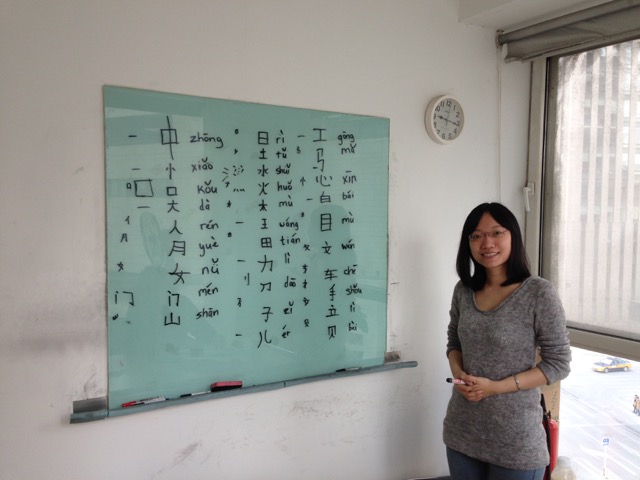 中 zhōng
小 xiǎo
口 kǒu
大 dà
人 rén
月 yuè
女 nǚ
门 mén
山 shān
日 rì
土 tǔ
水 shuǐ
火 huǒ
木 mù
王 wáng
田 tián
力 lì
刀 dāo
子 zǐ
儿 ér
工 gōng
马 mǎ
心 xīn
白 bái
目 mù
文 wén
车 chē
手 shǒu
立 lì
贝 bèi